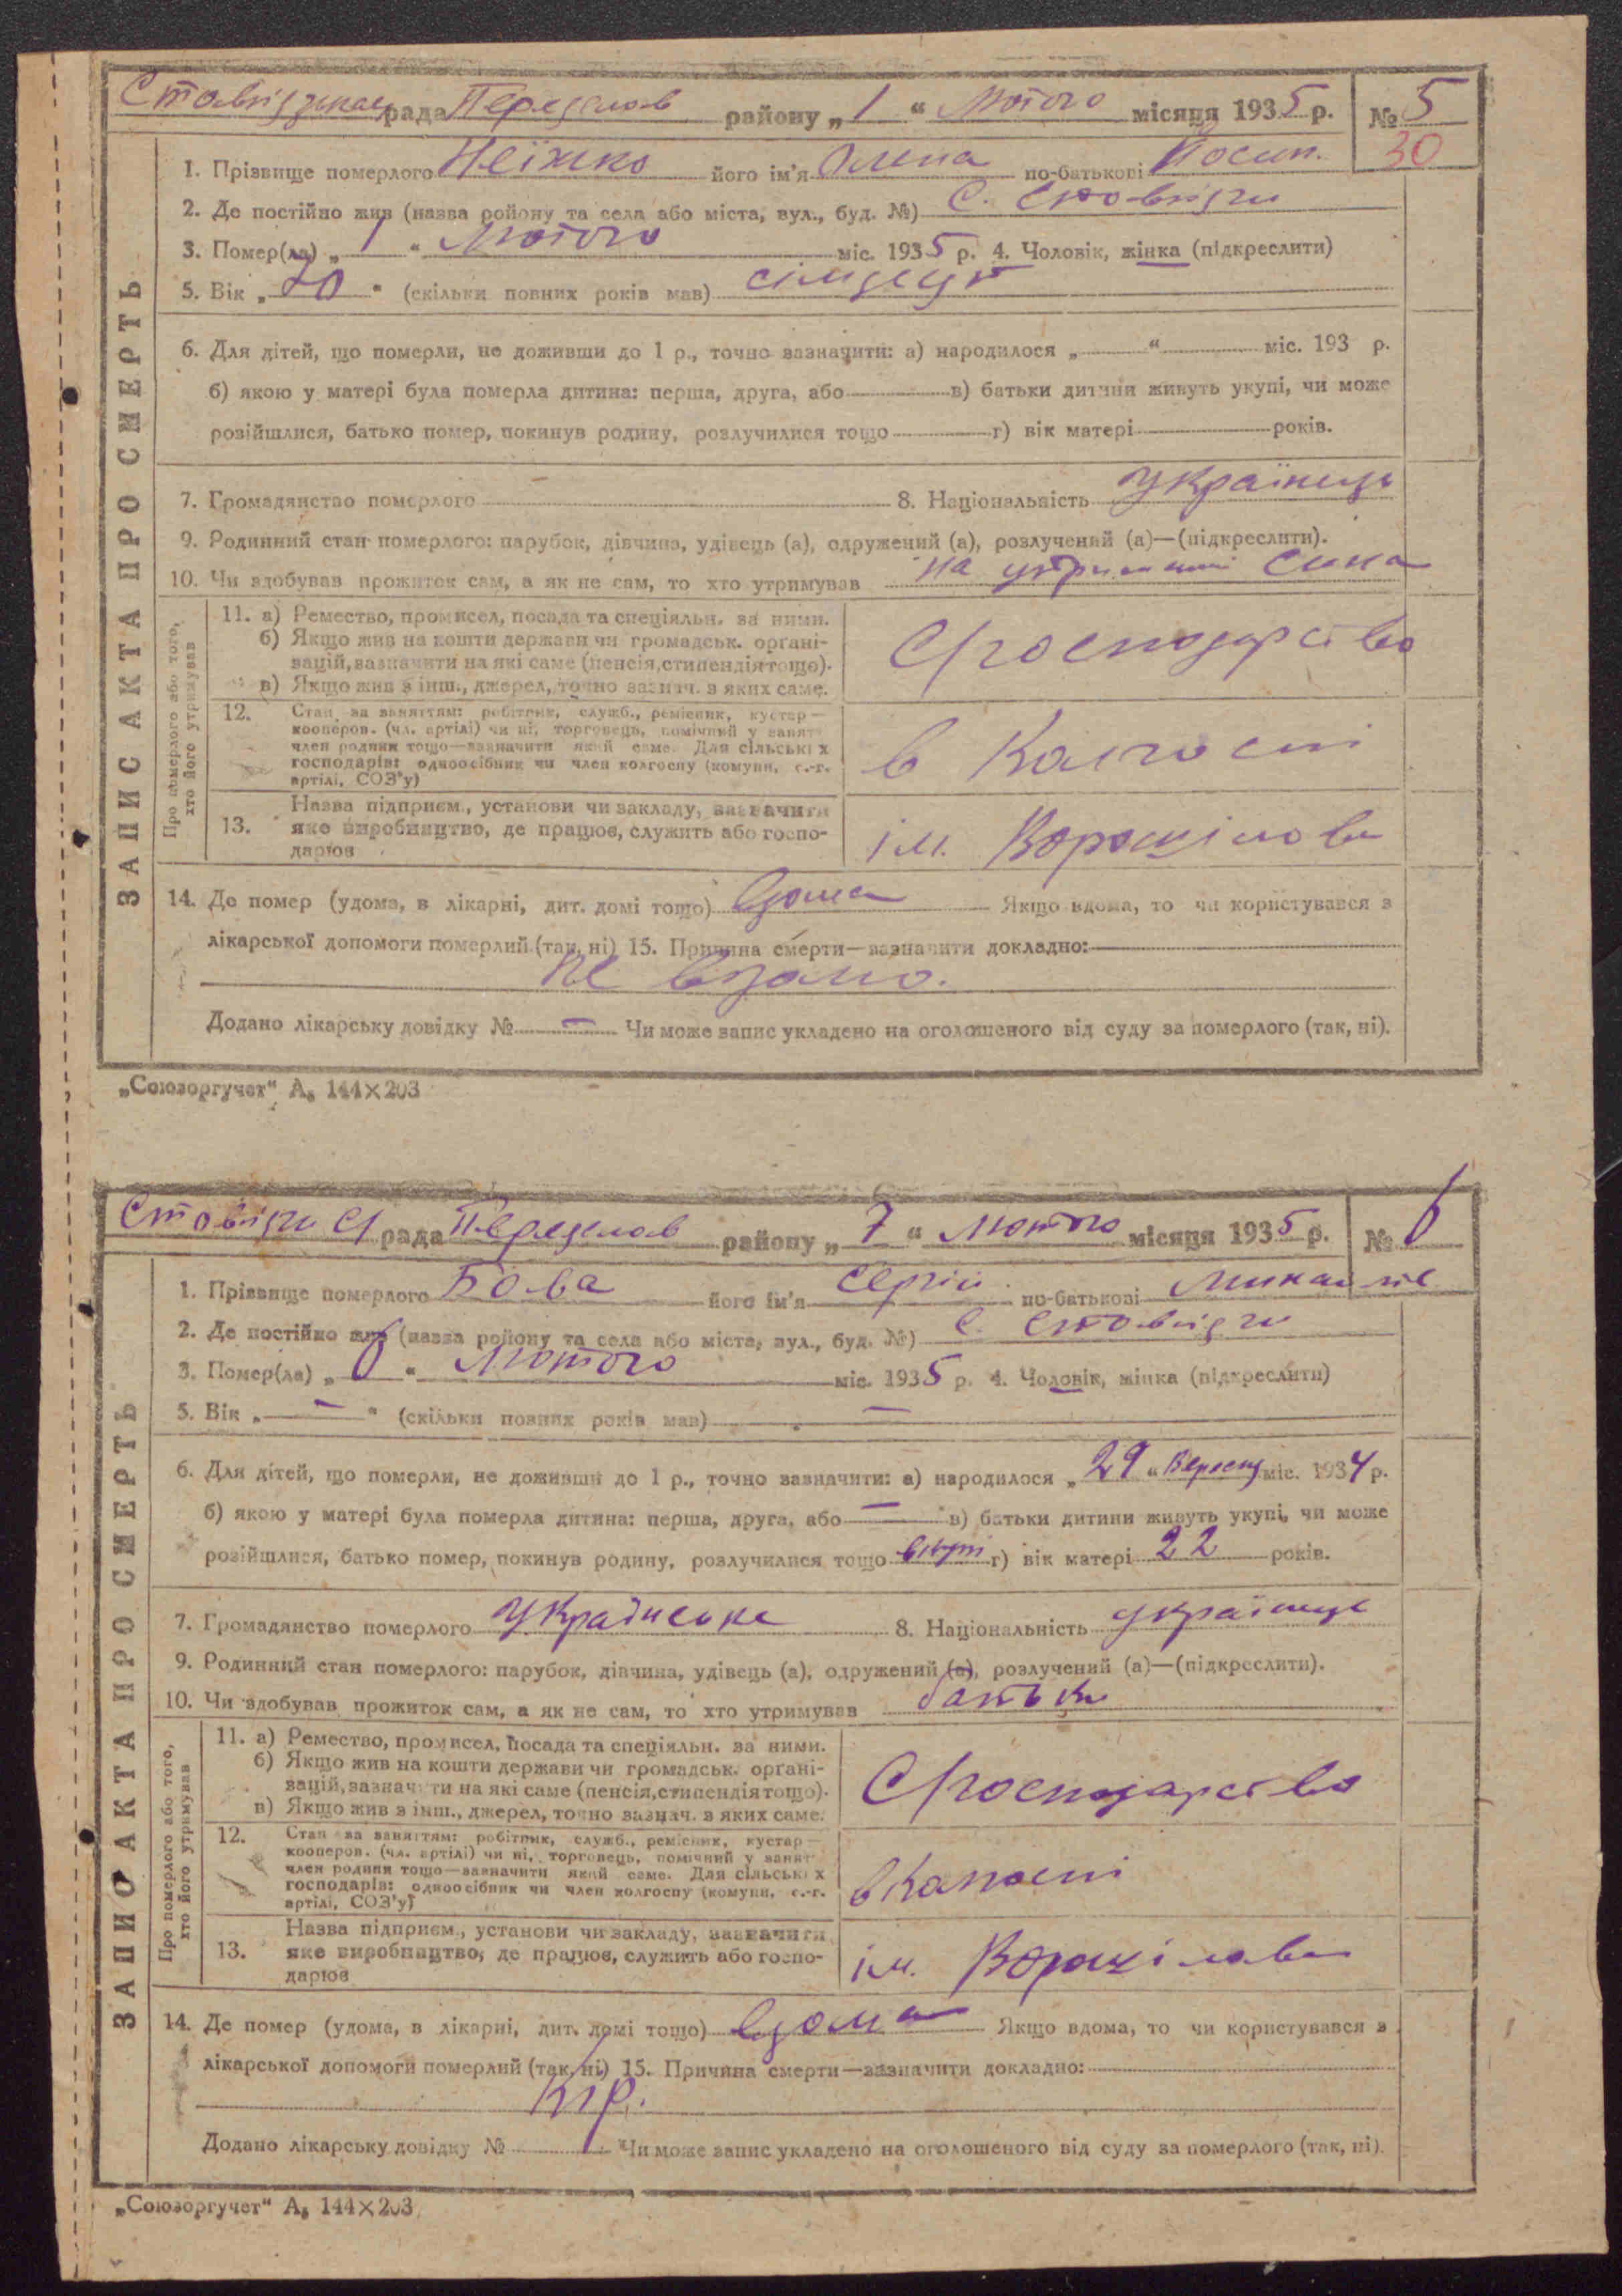 рада Переяслав району „ 1 “ Лютого місяця 1935 р. № 5
30
1. Прізвище померлого Неїжко його ім'я Олена по-батькові Йосип.
2. Де постійно жив (назва ройону та села або міста, вул., буд. №) с. Стовп'яги
3. Помер(ла) „ 1 “ Лютого міс. 1935 р. 4. Чоловік, жінка (підкреслити)
5. Вік „ 70 “ (скільки повних років мав) сімдесят
6. Для дітей, що померли, не доживши до 1 р., точно зазначити: а) народилося „ “ міс. 193 р.
б) якою у матері була померла дитина: перша, друга, або в) батьки дитини живуть укупі, чи може
розійшлися, батько помер, покинув родину, розлучилися тощо г) вік матері років.
7. Громадянство померлого 8. Національність Українець
9. Родинний стан померлого: парубок, дівчина, удівець (а), одружений (а), розлучений (а)—(підкреслити).
10. Чи здобував прожиток сам, а як не сам, то хто утримував на утриманні сина
ЗАПИС АКТА ПРО СМЕРТЬ
Про померлого або того, хто його утримував
11. а) Ремество, промисел, посада та спеціяльн. за ними.
б) Якщо жив на кошти держави чи громадськ. органі-
зацій, зазначити на які саме (пенсія, стипендія тощо).
в) Якщо жив з інш., джерел, точно зазнач. з яких саме.
С/господарство
12. Стан за заняттям: робітник, служб., ремісник, кустар—
кооперов. (чл. артілі) чи ні, торговець, помічний у занят.
член родини тощо—зазначити який саме. Для сільських
господарів: одноосібник чи член колгоспу (комуни, с.-г.
артілі, СОЗ'у)
в Колгоспі
13. Назва підприєм., установи чи закладу, зазначити
яке виробництво, де працює, служить або госпо-
дарює
ім. Ворошілова
14. Де помер (удома, в лікарні, дит. домі тощо) вдома Якщо вдома, то чи користувався з
лікарської допомоги померлий (так, ні) 15. Причина смерти—зазначити докладно:
не відомо.
Додано лікарську довідку № — Чи може запис укладено на оголошеного від суду за померлого (так, ні).
„Союзоргучет“ А₅ 144×203
рада Переяслав району „ 7 “ Лютого місяця 1935 р. № 6
1. Прізвище померлого Бова його ім'я Сергій по-батькові
2. Де постійно жив (назва ройону та села або міста, вул., буд. №) с. Стовп'яги
3. Помер(ла) „ 6 “ Лютого міс. 1935 р. 4. Чоловік, жінка (підкреслити)
5. Вік „ — “ (скільки повних років мав) —
6. Для дітей, що померли, не доживши до 1 р., точно зазначити: а) народилося „ 29 “ Вересня міс. 1934 р.
б) якою у матері була померла дитина: перша, друга, або — в) батьки дитини живуть укупі, чи може
розійшлися, батько помер, покинув родину, розлучилися тощо вкупі г) вік матері 22 років.
7. Громадянство померлого Українське 8. Національність українець
9. Родинний стан померлого: парубок, дівчина, удівець (а), одружений (а), розлучений (а)—(підкреслити).
10. Чи здобував прожиток сам, а як не сам, то хто утримував батьки
ЗАПИС АКТА ПРО СМЕРТЬ
Про померлого або того, хто його утримував
11. а) Ремество, промисел, посада та спеціяльн. за ними.
б) Якщо жив на кошти держави чи громадськ. органі-
зацій, зазначити на які саме (пенсія, стипендія тощо).
в) Якщо жив з інш., джерел, точно зазнач. з яких саме.
С/господарство
12. Стан за заняттям: робітник, служб., ремісник, кустар—
кооперов. (чл. артілі) чи ні, торговець, помічний у занят.
член родини тощо—зазначити який саме. Для сільських
господарів: одноосібник чи член колгоспу (комуни, с.-г.
артілі, СОЗ'у)
в Колгоспі
13. Назва підприєм., установи чи закладу, зазначити
яке виробництво, де працює, служить або госпо-
дарює
ім. Ворошілова
14. Де помер (удома, в лікарні, дит. домі тощо) вдома Якщо вдома, то чи користувався з
лікарської допомоги померлий (так, ні) 15. Причина смерти—зазначити докладно:
Додано лікарську довідку № Чи може запис укладено на оголошеного від суду за померлого (так, ні).
„Союзоргучет“ А₅ 144×203